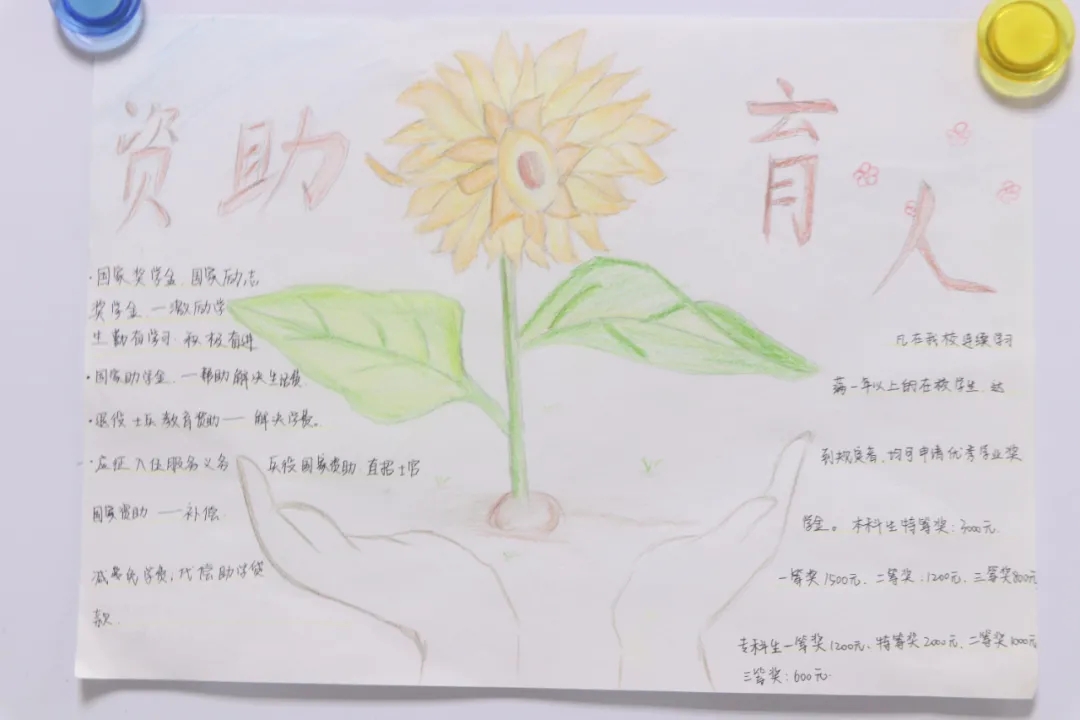 资助
育人
·国家奖学金、国家励志
奖学金 — 激励学
生勤有学习、积极有进
·国家助学金 — 帮助解决生活费
·退役士兵教育资助 — 解决学费。
·应征入伍服务义务 兵役国家资助 直招士官
国家资助 — 补偿
减免学费,代偿助学贷
款.
凡在我校连续学习
满一年以上的在校学生,达
到规定者、均可申请优秀学业奖
学金。本科生特等奖:3000元.
一等奖1500元、二等奖:1200元、三等奖800元
专科生一等奖1200元、特等奖2000元、二等奖1000元
三等奖:600元.